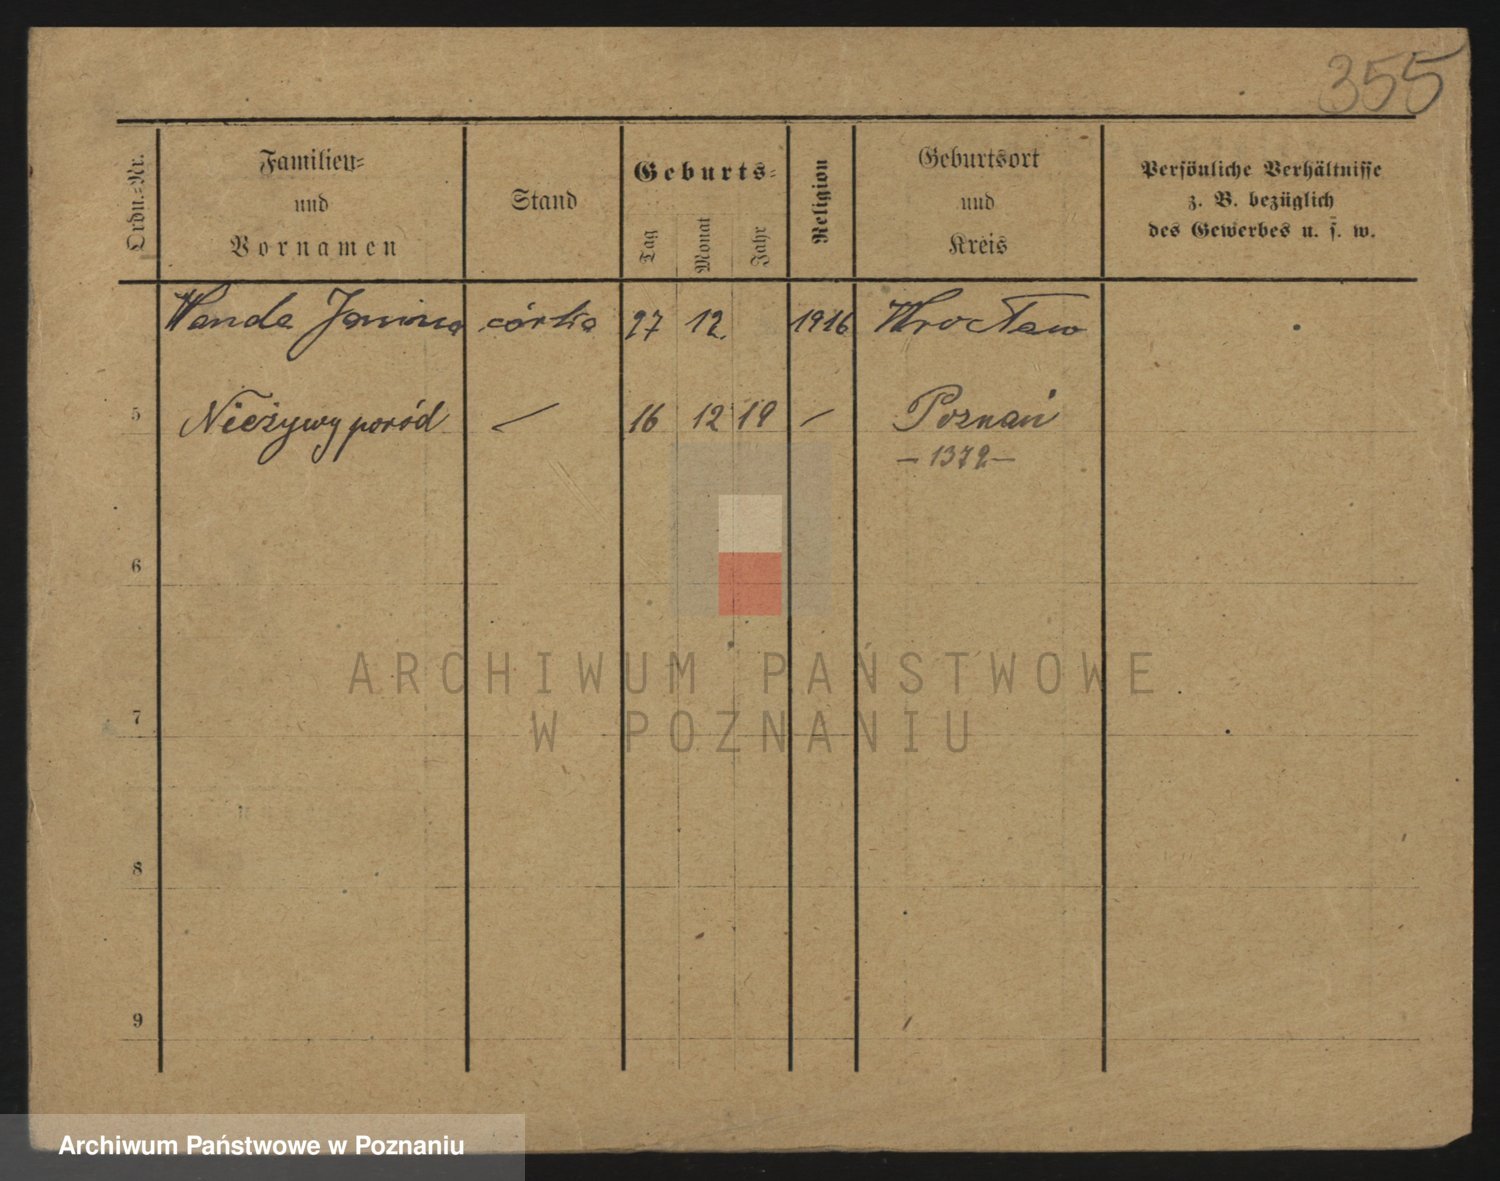 355
Ordn.-Nr.
Familien-
und
Vornamen
Stand
Geburts-
Tag
Monat
Jahr
Religion
Geburtsort
und
Kreis
Persönliche Verhältnisse
z. B. bezüglich
des Gewerbes u. s. w.
Wanda Janina córka 27 12. 1916 Wrocław
5 Nieżywy poród — 16 12 19 — Poznań
— 1372 —
6
7
8
9
ARCHIWUM PAŃSTWOWE
W POZNANIU
Archiwum Państwowe w Poznaniu